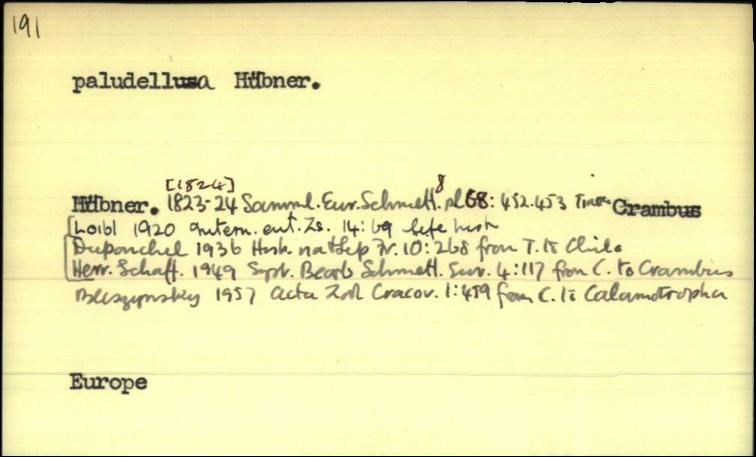 191
paludella Hübner.
[1824]
Hübner. 1823-24 Samml. Eur. Schmett. 8 pl 68: 452.453 Tinea Crambus
Loibl 1920 Intern. ent. Zs. 14:69 life hist
Duponchel 1936 Hist. nat Lep Fr. 10:268 from T. to Chilo
Herr. Schaff. 1949 Syst. Bearb Schmett. Eur. 4:117 from C. to Crambus
Bleszynsky 1957 Acta Zool Cracov. 1:459 from C. to Calamotropha
Europe